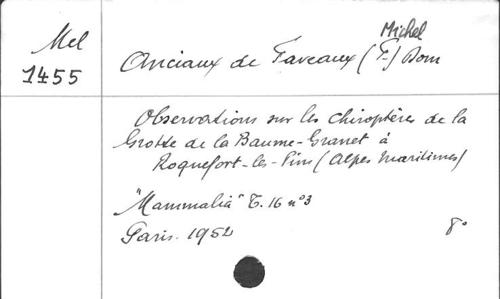 Mel
1455
Michel
Anciaux de Faveaux (F.) Dom
Observations sur les chiroptères de la
Grotte de la Baume-Granet à
Roquefort-les-Pins (Alpes maritimes)
"Mammalia" T. 16 n°3
Paris. 1952
8°